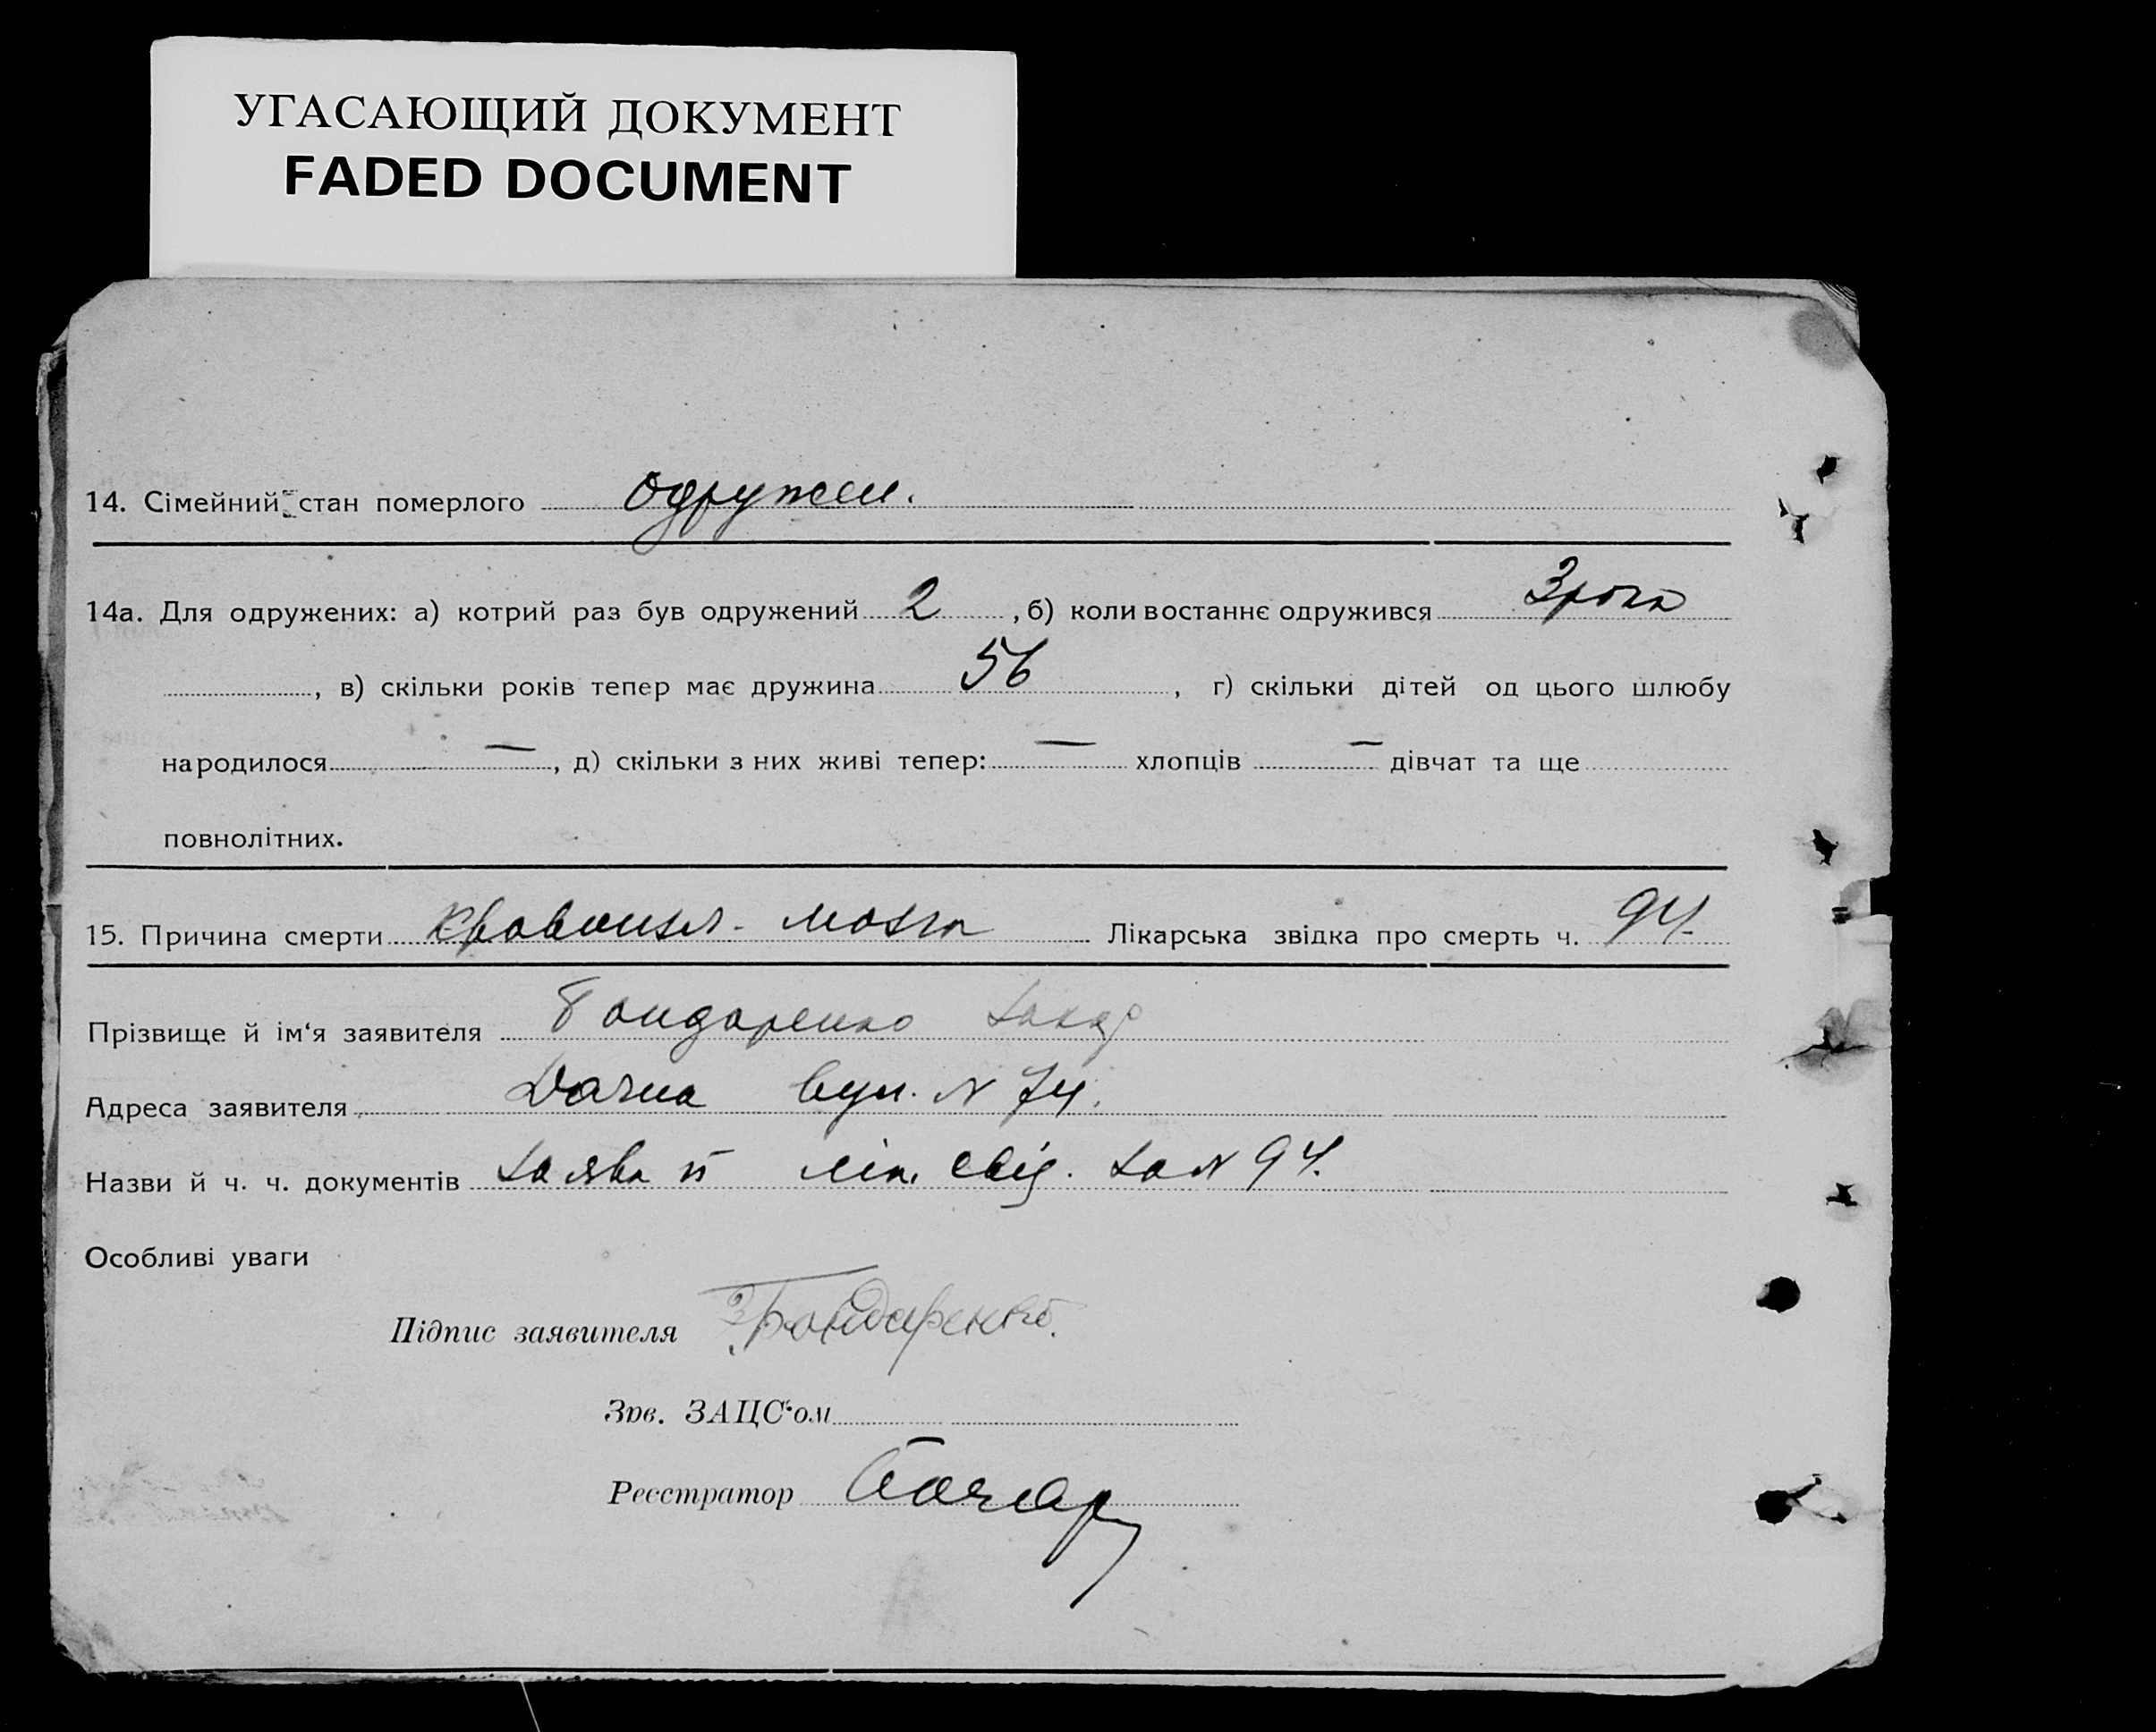 УГАСАЮЩИЙ ДОКУМЕНТ
FADED DOCUMENT
14. Сімейний стан померлого одружен.
14а. Для одружених: а) котрий раз був одружений 2, б) коли востаннє одружився 3 рока
, в) скільки років тепер має дружина 56, г) скільки дітей од цього шлюбу
народилося —, д) скільки з них живі тепер: — хлопців — дівчат та ще
повнолітних.
15. Причина смерти мозга Лікарська звідка про смерть ч. 94.
Прізвище й ім‘я заявителя Бондаренко Захар
Адреса заявителя Дачна вул. N 74.
Назви й ч. ч. документів Заява й лік. свід. за N 94.
Особливі уваги
Підпис заявителя З Бондаренко.
Зав. ЗАЦС‘ом
Реєстратор